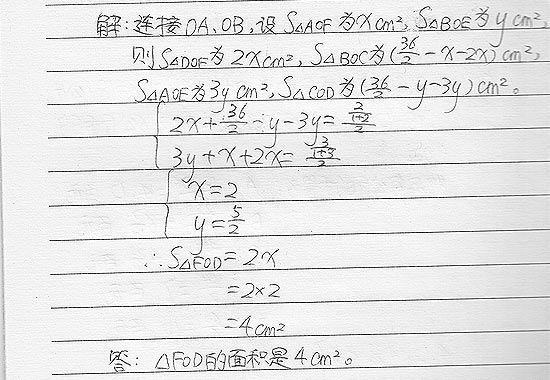 解:连接OA、OB,设S△AOF为xcm²,S△BOE为ycm²,
则S△DOF为2xcm²,S△BOC为(36/2-x-2x)cm²,
S△AOE为3ycm²,S△COD为(36/2-y-3y)cm²。
2x+36/2-y-3y=2/(1+2)/2
3y+x+2x=3/(1+3)/2
x=2
y=5/2
∴S△FOD=2x
=2×2
=4cm²
答:△FOD的面积是4cm²。